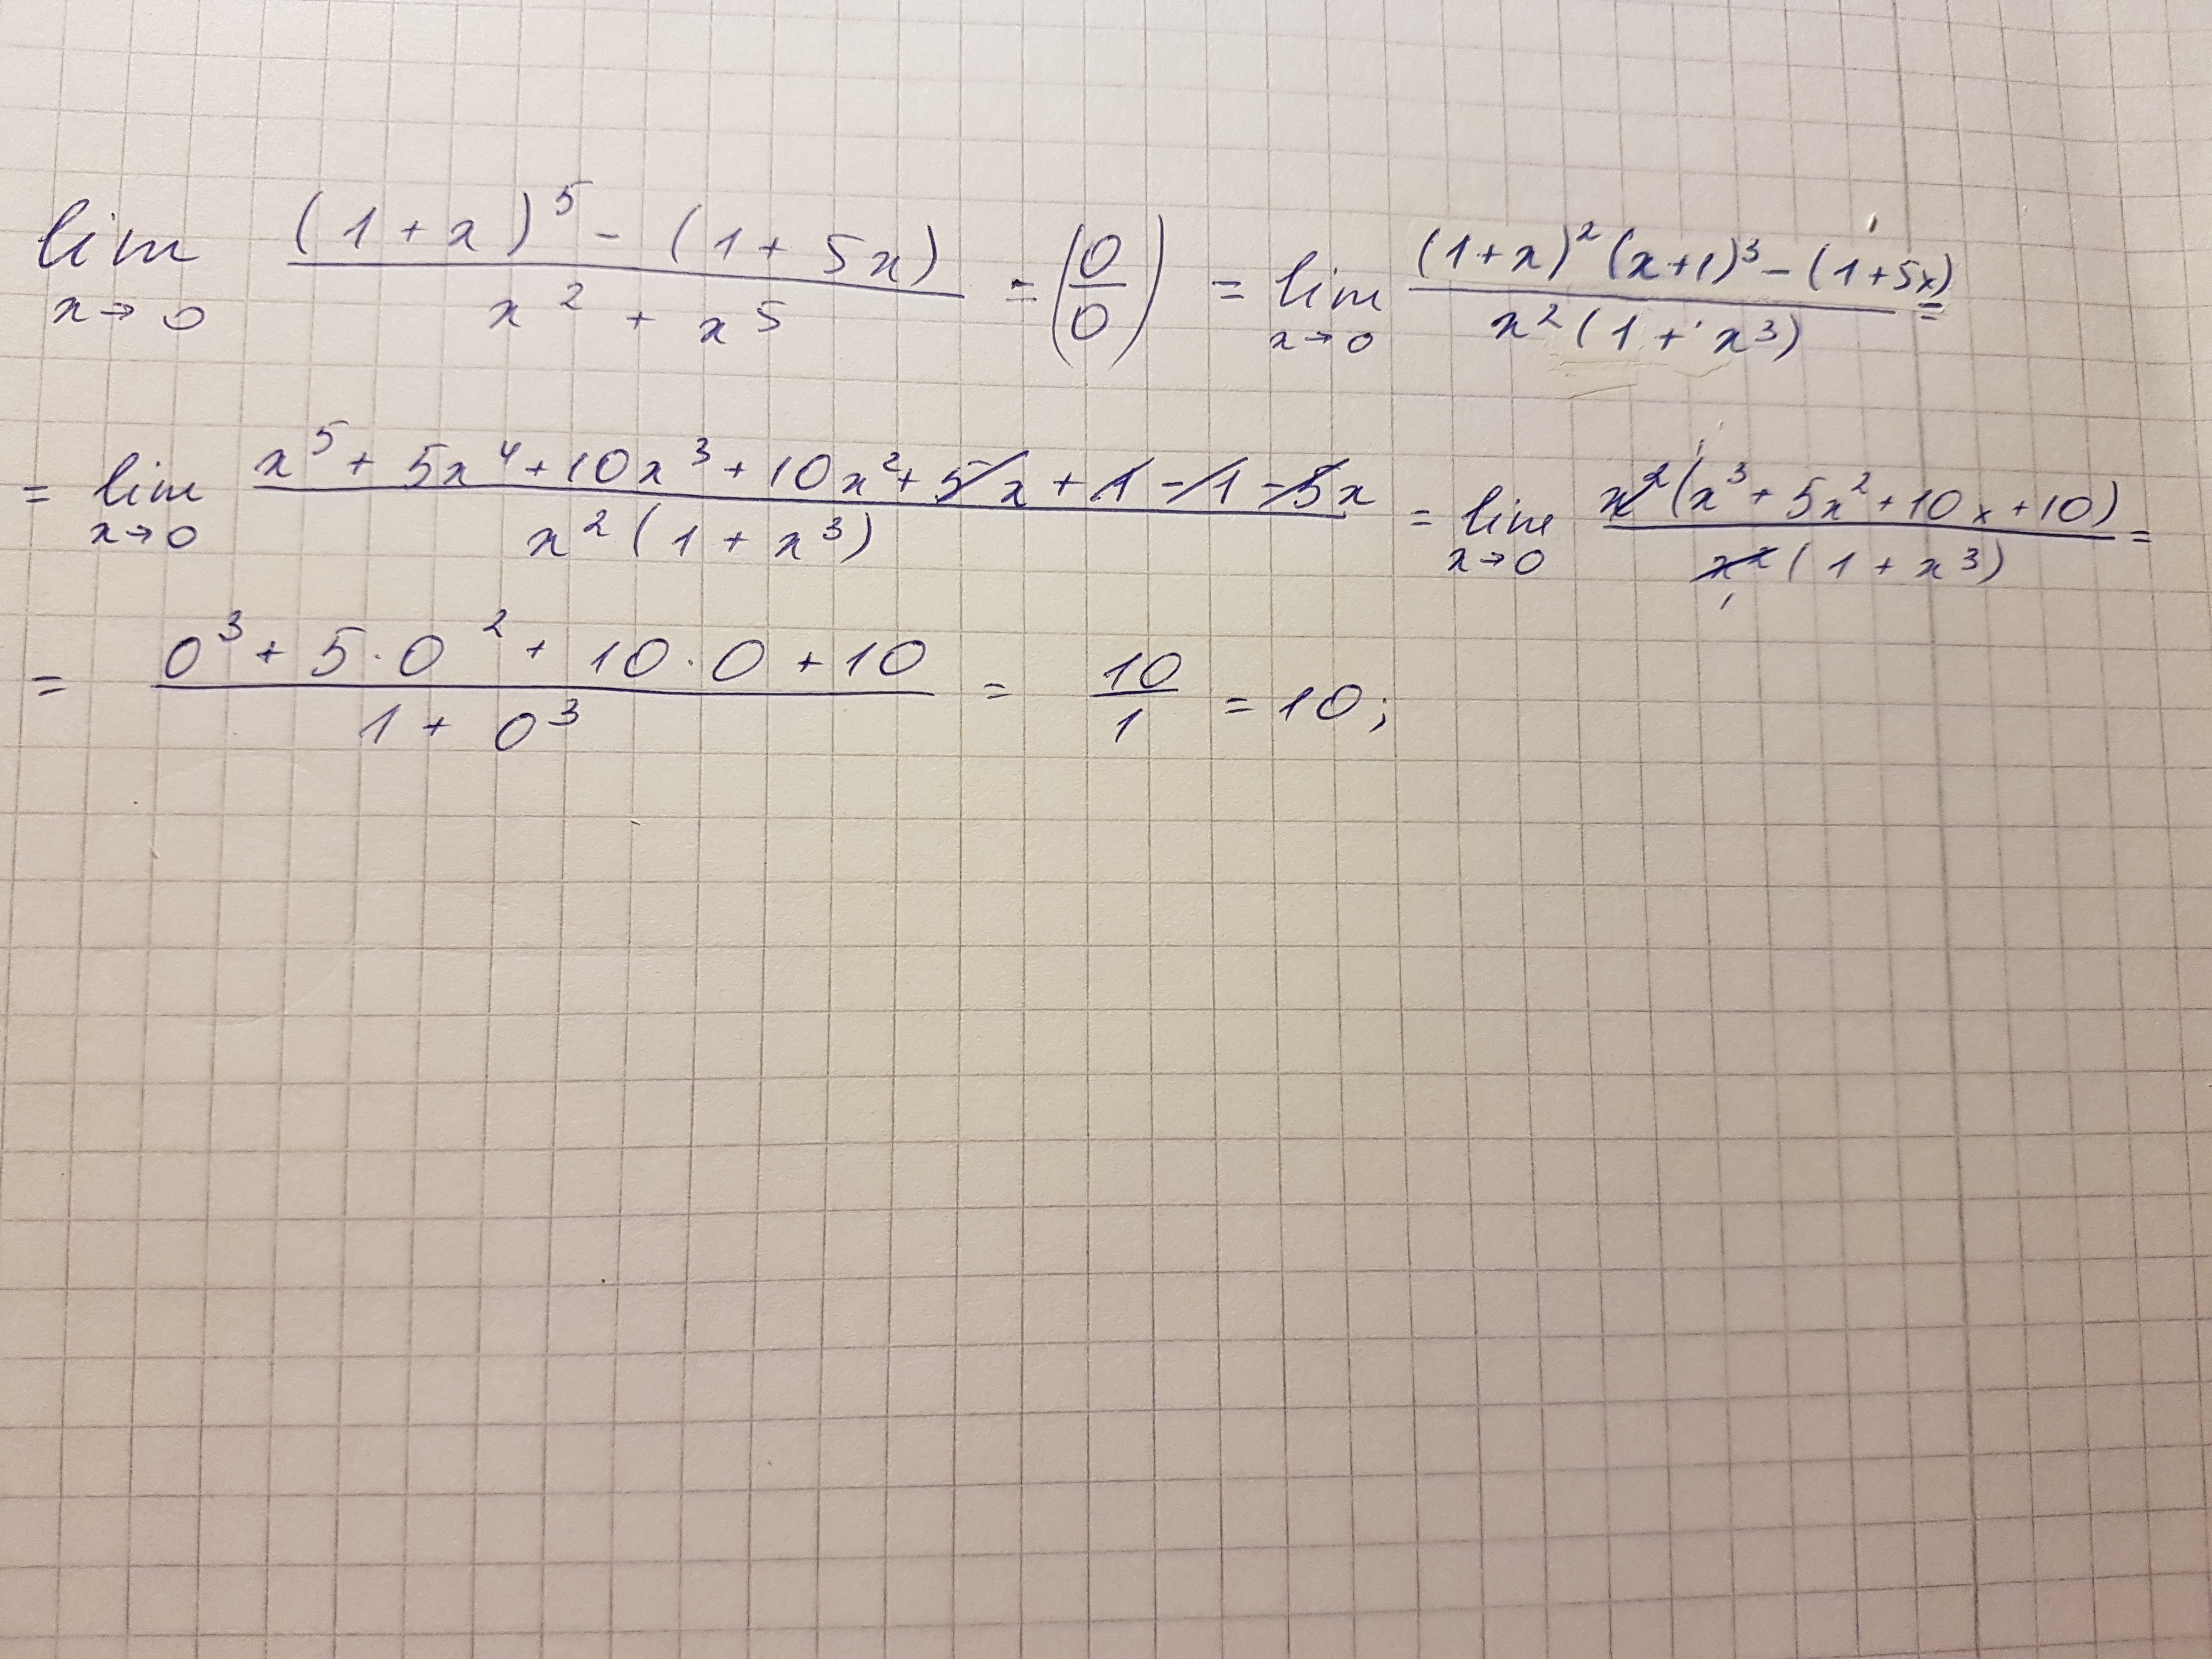 lim x→0 ((1+x)^5 - (1+5x))/(x^2 + x^5) = (0/0) = lim x→0 ((1+x)^2 (x+1)^3 - (1+5x))/(x^2 (1+x^3)) =
= lim x→0 (x^5 + 5x^4 + 10x^3 + 10x^2 + 5x + 1 - 1 - 5x)/(x^2 (1+x^3)) = lim x→0 (x^2 (x^3 + 5x^2 + 10x + 10))/(x^2 (1+x^3)) =
= (0^3 + 5·0^2 + 10·0 + 10)/(1 + 0^3) = 10/1 = 10;